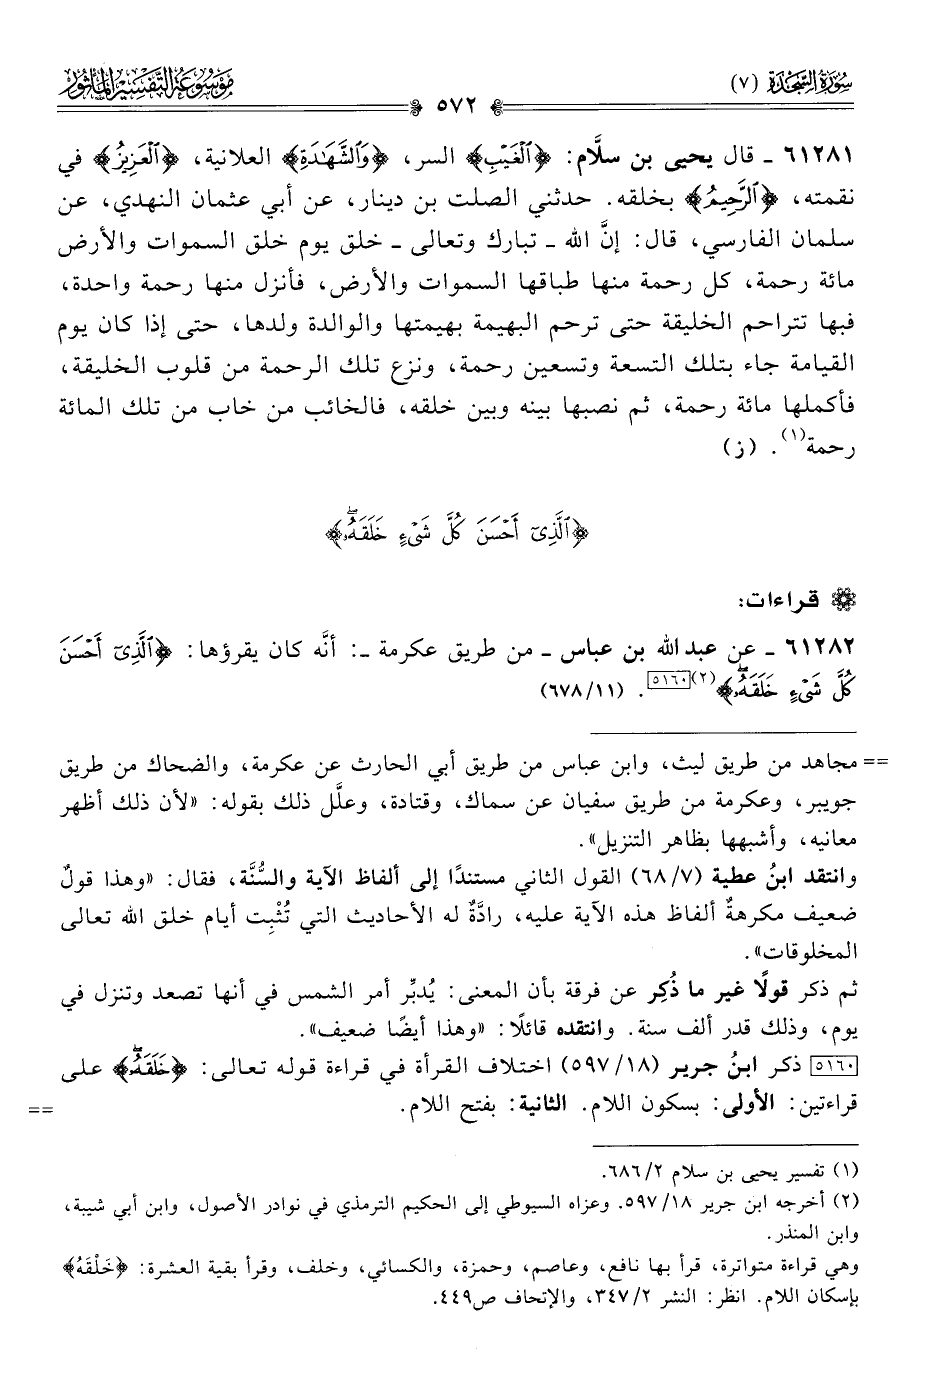 سورة السجدة (٧)
٥٧٢
موسوعة التفسير المأثور
٦١٢٨١ ـ قال يحيى بن سلَّام: ﴿ٱلْغَيْبِ﴾ السر، ﴿وَٱلشَّهَٰدَةِ﴾ العلانية، ﴿ٱلْعَزِيزُ﴾ في
نقمته، ﴿ٱلرَّحِيمُ﴾ بخلقه. حدثني الصلت بن دينار، عن أبي عثمان النهدي، عن
سلمان الفارسي، قال: إنَّ الله ـ تبارك وتعالى ـ خلق يوم خلق السموات والأرض
مائة رحمة، كل رحمة منها طباقها السموات والأرض، فأنزل منها رحمة واحدة،
فبها تتراحم الخليقة حتى ترحم البهيمة بهيمتها والوالدة ولدها، حتى إذا كان يوم
القيامة جاء بتلك التسعة وتسعين رحمة، ونزع تلك الرحمة من قلوب الخليقة،
فأكملها مائة رحمة، ثم نصبها بينه وبين خلقه، فالخائب من خاب من تلك المائة
رحمة(١). (ز)
﴿ٱلَّذِىٓ أَحْسَنَ كُلَّ شَىْءٍ خَلَقَهُۥۖ﴾
قراءات:
٦١٢٨٢ ـ عن عبد الله بن عباس ـ من طريق عكرمة ـ: أنَّه كان يقرؤها: ﴿ٱلَّذِىٓ أَحْسَنَ
كُلَّ شَىْءٍ خَلَقَهُۥۖ﴾(٢)[٥١٦٠]. (٦٧٨/١١)
== مجاهد من طريق ليث، وابن عباس من طريق أبي الحارث عن عكرمة، والضحاك من طريق
جويبر، وعكرمة من طريق سفيان عن سماك، وقتادة، وعلَّل ذلك بقوله: «لأن ذلك أظهر
معانيه، وأشبهها بظاهر التنزيل».
وانتقد ابنُ عطية (٦٨/٧) القول الثاني مستندًا إلى ألفاظ الآية والسُّنَّة، فقال: «وهذا قولٌ
ضعيف مكرهةٌ ألفاظ هذه الآية عليه، رادَّةٌ له الأحاديث التي تُثْبِت أيام خلق الله تعالى
المخلوقات».
ثم ذكر قولًا غير ما ذُكِر عن فرقة بأن المعنى: يُدبِّر أمر الشمس في أنها تصعد وتنزل في
يوم، وذلك قدر ألف سنة. وانتقده قائلًا: «وهذا أيضًا ضعيف».
[٥١٦٠] ذكر ابنُ جرير (٥٩٧/١٨) اختلاف القرأة في قراءة قوله تعالى: ﴿خَلَقَهُۥۖ﴾ على
قراءتين: الأولى: بسكون اللام. الثانية: بفتح اللام. ==
(١) تفسير يحيى بن سلام ٦٨٦/٢.
(٢) أخرجه ابن جرير ٥٩٧/١٨. وعزاه السيوطي إلى الحكيم الترمذي في نوادر الأصول، وابن أبي شيبة،
وابن المنذر.
وهي قراءة متواترة، قرأ بها نافع، وعاصم، وحمزة، والكسائي، وخلف، وقرأ بقية العشرة: ﴿خَلْقَهُ﴾
بإسكان اللام. انظر: النشر ٣٤٧/٢، والإتحاف ص٤٤٩.